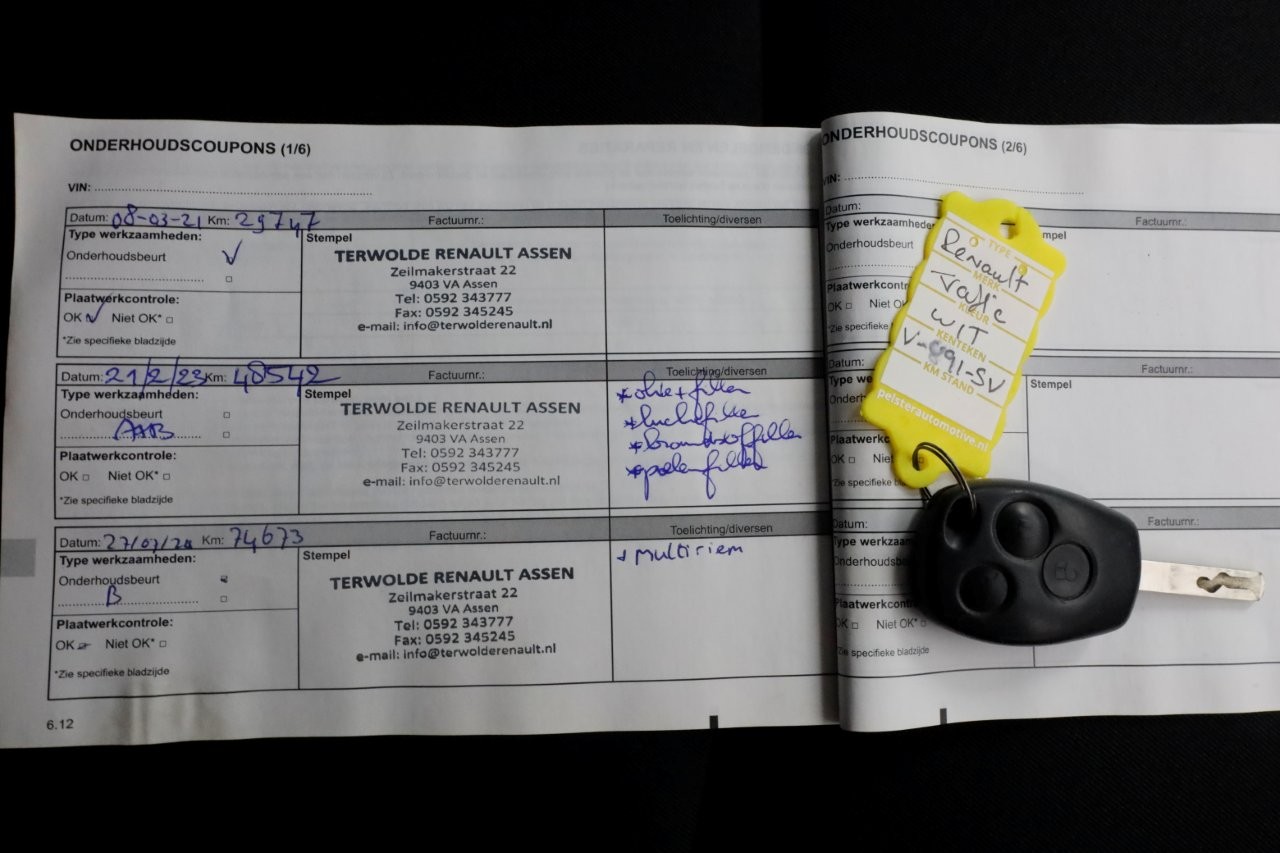 ONDERHOUDSCOUPONS (1/6)
VIN:
Datum: 08-03-21 Km: 29747 Factuurnr.: Toelichting/diversen
Type werkzaamheden:
Onderhoudsbeurt
Plaatwerkcontrole:
OK Niet OK*
*Zie specifieke bladzijde
Stempel
TERWOLDE RENAULT ASSEN
Zeilmakerstraat 22
9403 VA Assen
Tel: 0592 343777
Fax: 0592 345245
e-mail: info@terwolderenault.nl
Datum: 21/2/23 Km: 48542 Factuurnr.: Toelichting/diversen
Type werkzaamheden:
Onderhoudsbeurt
Plaatwerkcontrole:
OK Niet OK*
*Zie specifieke bladzijde
Stempel
TERWOLDE RENAULT ASSEN
Zeilmakerstraat 22
9403 VA Assen
Tel: 0592 343777
Fax: 0592 345245
e-mail: info@terwolderenault.nl
* olie + filter
* luchtfilter
* brandstoffilter
* pollenfilter
Datum: Km: 74673 Factuurnr.: Toelichting/diversen
Type werkzaamheden:
Onderhoudsbeurt
B
Plaatwerkcontrole:
OK Niet OK*
*Zie specifieke bladzijde
Stempel
TERWOLDE RENAULT ASSEN
Zeilmakerstraat 22
9403 VA Assen
Tel: 0592 343777
Fax: 0592 345245
e-mail: info@terwolderenault.nl
+ multiriem
6.12
ONDERHOUDSCOUPONS (2/6)
VIN:
Datum: Factuurnr.:
Type werkzaamhede
Onderhoudsbeurt
Plaatwerkcontrole
OK Niet OK
*Zie specifieke
mpel
Datum:
Type we
Onder
Plaatwerkco
OK Niet
*Zie specifieke b
Stempel
Factuurnr.:
Datum: Factuurnr.:
Type werkzaa
Onderhoudsb
Plaatwerkcont
OK Niet OK*
*Zie specifieke bladzijde
TYPE
Renault
MERK
Trafic
KLEUR
WIT
KENTEKEN
V-091-SV
KM STAND
pelsterautomotive.nl